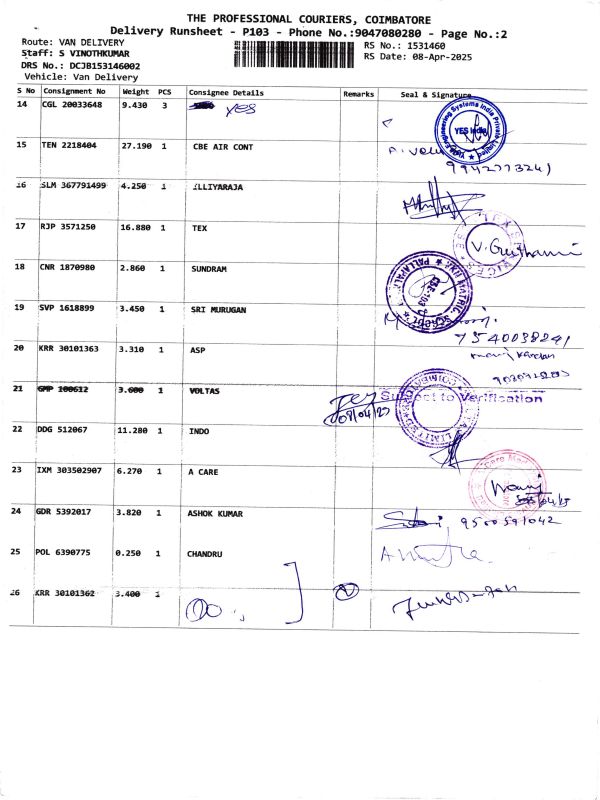 THE PROFESSIONAL COURIERS, COIMBATORE
Delivery Runsheet - P103 - Phone No.:9047080280 - Page No.:2
Route: VAN DELIVERY
RS No.: 1531460
Staff: S VINOTHKUMAR
RS Date: 08-Apr-2025
DRS No.: DCJB153146002
Vehicle: Van Delivery
S No Consignment No Weight PCS Consignee Details Remarks Seal & Signature
14 CGL 20033648 9.430 3 YES
YES India
15 TEN 2218404 27.190 1 CBE AIR CONT
9942773241
16 SLM 367791499 4.250 1 ILLIYARAJA
17 RJP 3571250 16.880 1 TEX
18 CNR 1870980 2.860 1 SUNDRAM
19 SVP 1618899 3.450 1 SRI MURUGAN
7540038241
20 KRR 30101363 3.310 1 ASP
21 GMP 100612 3.600 1 VOLTAS
Subject to Verification
08/04/25
22 DDG 512067 11.280 1 INDO
23 IXM 303502907 6.270 1 A CARE
24 GDR 5392017 3.820 1 ASHOK KUMAR
9500591042
25 POL 6390775 0.250 1 CHANDRU
26 KRR 30101362 3.400 1